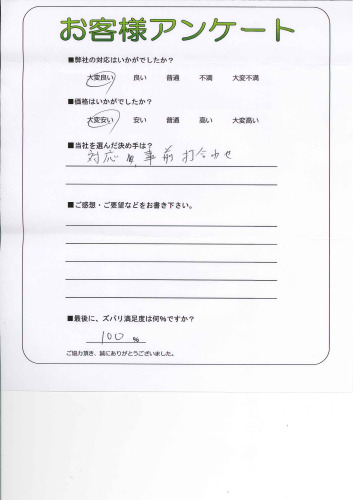 お客様アンケート
■弊社の対応はいかがでしたか？
大変良い 良い 普通 不満 大変不満
■価格はいかがでしたか？
大変安い 安い 普通 高い 大変高い
■当社を選んだ決め手は？
対応 事前打合わせ
■ご感想・ご要望などをお書き下さい。
■最後に、ズバリ満足度は何%ですか？
100 %
ご協力頂き、誠にありがとうございました。